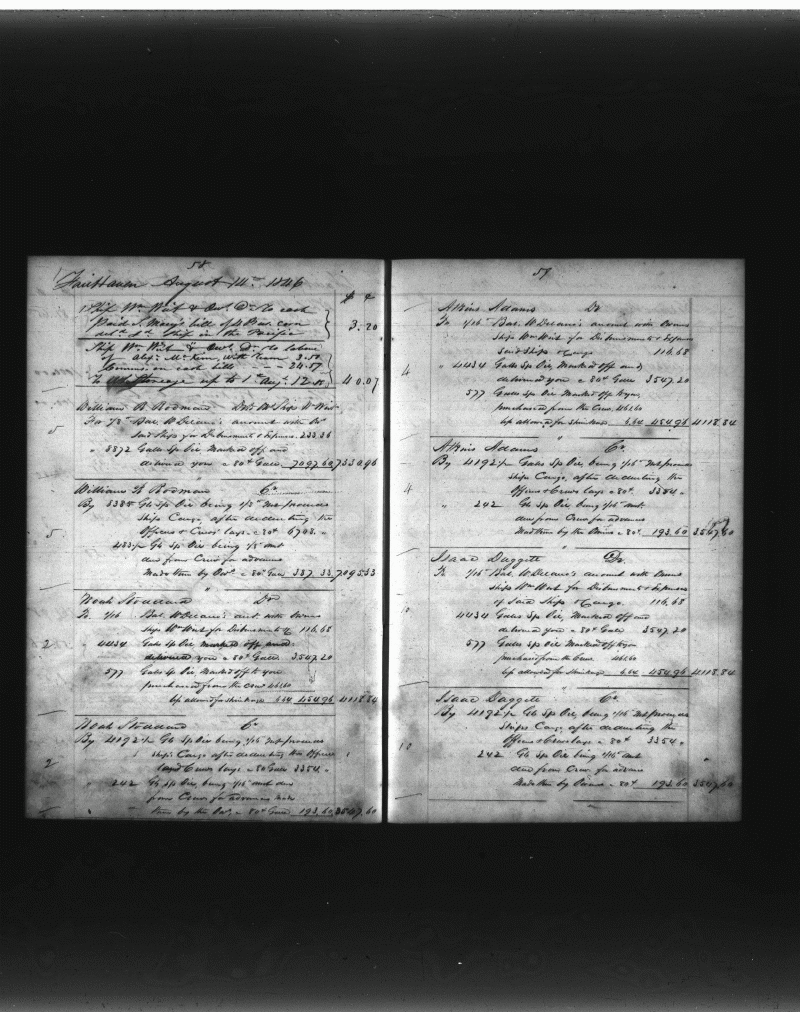 58
Fairhaven August 14th 1846
$ ¢
Ship Wm Wirt & Ow. Dr to cash
Paid bill of corn
Ship in the Pacific 3.20
Ship Wm Wirt & Ow. Dr to labour
of Alexr McKim, with Team 3.50
Commis. on cash bills 24.57
To up to 1st Augt 12. 40.07
William R Rodman Dr to Ship Wm Wirt
5 To 1/8 Bal. W Delano's amount with Ow.
Said Ships for Disbursmts & Expenses. 233.36
" 8872 Galls Sp Oil Marked off and
delivered you @ 80¢ Galls 7097.60 7330.96
William R Rodman Cr
By 8385 Gls Sp Oil being 1/8 Nett proceeds
Ships Cargo, after deducting the
5 Officers & Crews lays @ 80¢ 6708. "
Gls Sps Oil being 1/8 amt
due from Crew for advances
Made them by Ow. @ 80¢ Galls 387.33 7095.33
Noah Stoddard Dr
To 1/16 Bal. W Delano's amt. with Owners
ships Wm Wirt for Disbursmts & 116.68
2 " 4434 Galls Sp Oil marked off and
delivered you @ 80¢ Galls 3547.20
577 Galls Sp Oil Marked off to you
purchased from the Crew 461.60
Less allowed for shrinkage 6.64 454.96 4118.84
Noah Stoddard Cr
By 4192½ Gls Sps Oil being 1/16 Nett proceeds
ships Cargo after deducting the Officers
2 and Crews lays @ 80 Galls 3354. "
" 242 Gls Sp Oil being 1/16 amt due
from Crew for advances made
them by the Ow. @ 80¢ Galls 193.60 3547.60
59
Atkins Adams Dr
To 1/16 Bal. W Delano's amount with Owners
Ships Wm Wirt for Disbursmts & Expenses
Said Ships & Cargo 116.68
4 " 4434 Galls Sp Oil, Marked off and
delivered you @ 80¢ Galls 3547.20
577 Galls Sp Oil Marked off to you,
purchased from the Crew 461.60
Less allowed for shrinkage 6.64 454.96 4118.84
Atkins Adams Cr
By 4192½ Galls Sps Oil, being 1/16 Nett proceeds
Ships Cargo, after deducting the
4 Officers & Crews lays @ 80¢ 3354. "
" 242 Gls Sp Oil being 1/16 amt.
due from Crew for advances
Made them by the Owners @ 80¢ 193.60 3547.60
Isaac Daggett Dr
To 1/16 Bal. W Delano's amount with Owners
ships Wm Wirt for Disbursmts & Expenses
of Said Ships & Cargo. 116.68
10 4434 Galls Sp Oil, Marked off and
delivered you @ 80¢ Galls 3547.20
577 Galls Sp Oil Marked off to you
purchased from the Crew 461.60
Less allowed for shrinkage 6.64 454.96 4118.84
Isaac Daggett Cr
By 4192½ Gls Sps Oil, being 1/16 Nett proceeds
Ships Cargo, after deducting the
10 Officers & Crews lays @ 80¢ 3354. "
242 Gls Sps Oil being 1/16 amt
due from Crew for advances
Made them by Owners @ 80¢ 193.60 3547.60